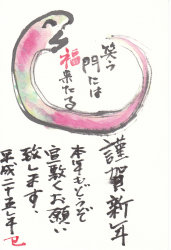 笑う
門には
福来たる
謹賀新年
本年もどうぞ
宜敷くお願い
致します、
平成二十五年 巳